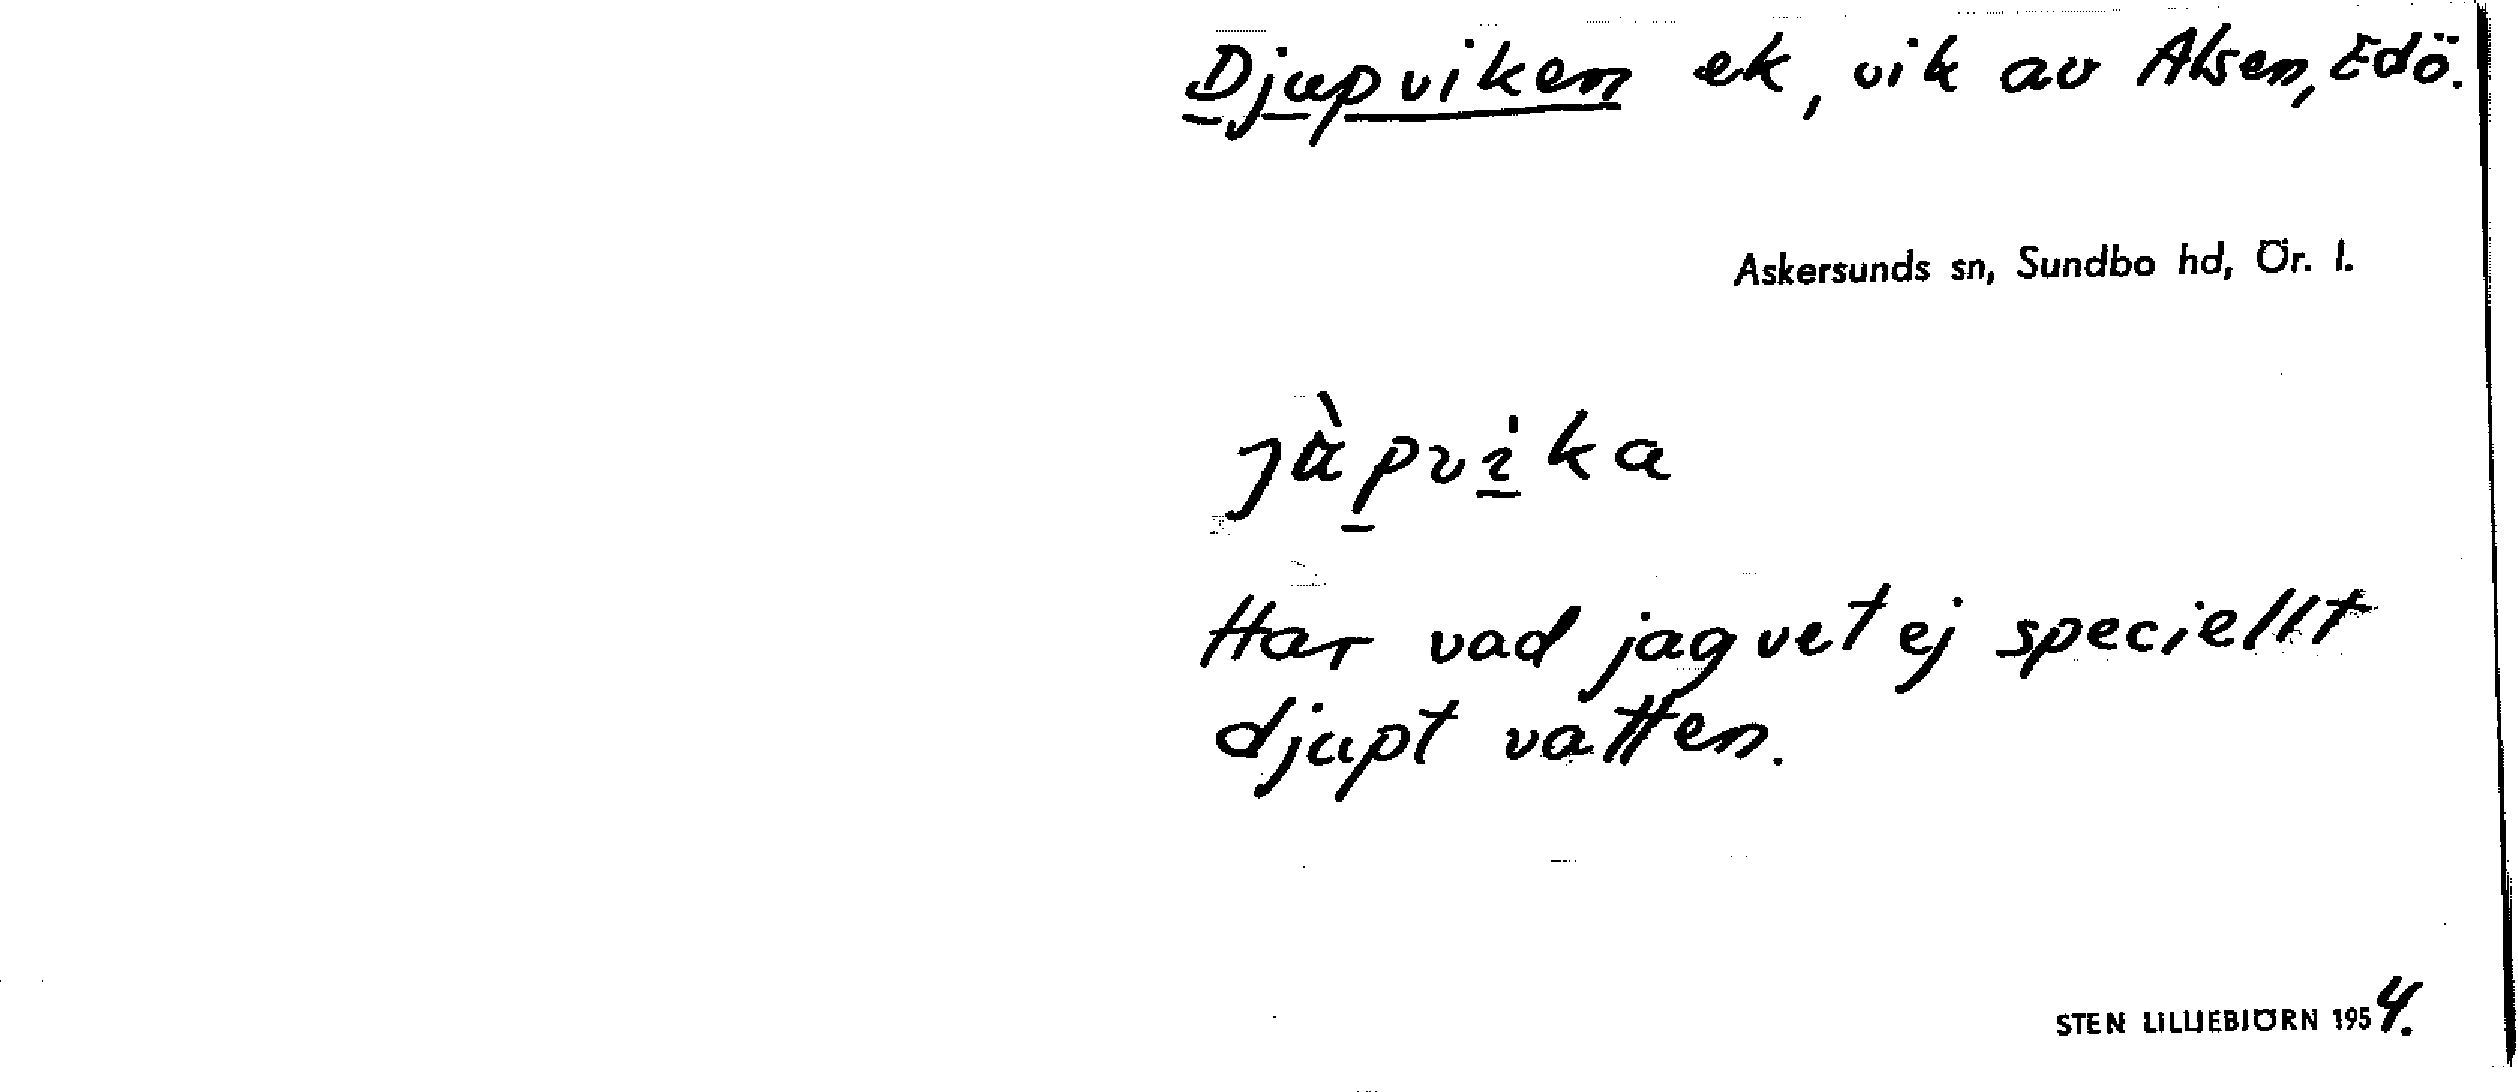 Djupviken ek, vik av Alsen, Edö.
Askersunds sn, Sundbo hd, Ör. l.
jùpvika
Har vad jag vet ej speciellt
djupt vatten.
STEN LILLIEBJÖRN 1954.